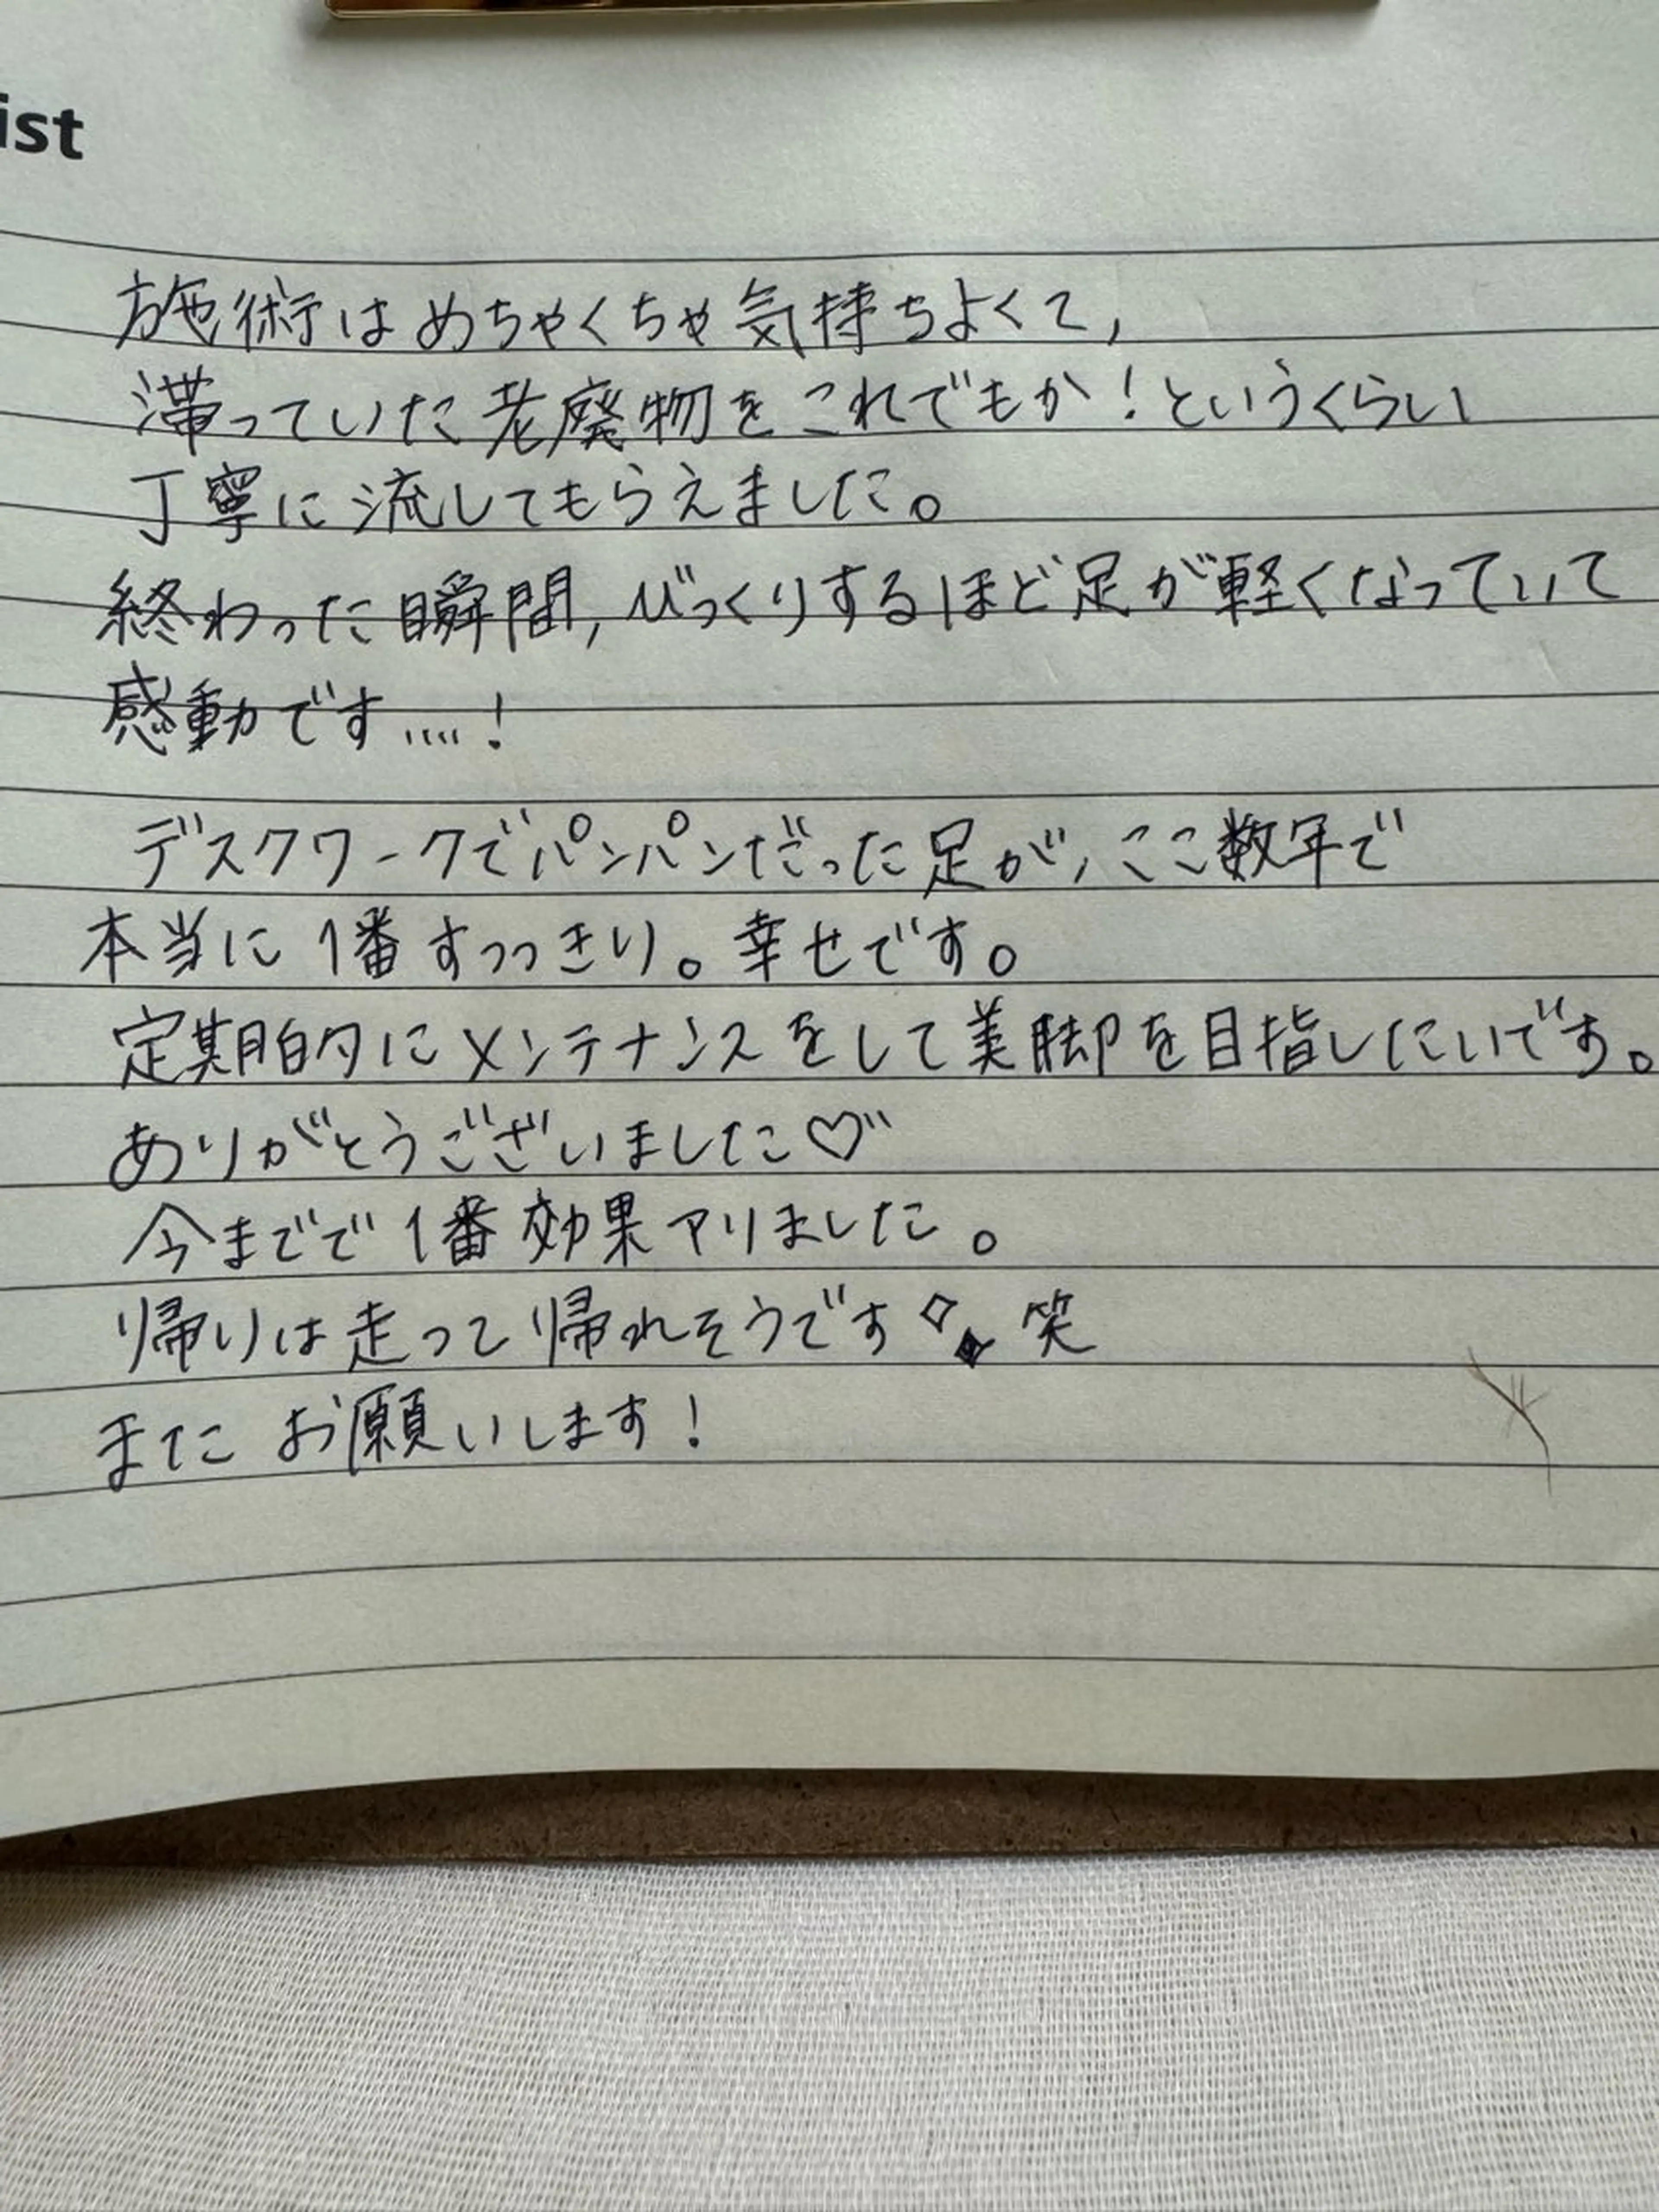 ist
施術はめちゃくちゃ気持ちよくて,
滞っていた老廃物をこれでもか!というくらい
丁寧に流してもらえました。
終わった瞬間,びっくりするほど足が軽くなっていて
感動です....!
デスクワークでパンパンだった足が、ここ数年で
本当に1番すっっきり。幸せです。
定期的にメンテナンスをして美脚を目指したいです。
ありがとうございました♡゛
今までで1番効果アリました。
帰りは走って帰れそうです◇◆笑
またお願いします!